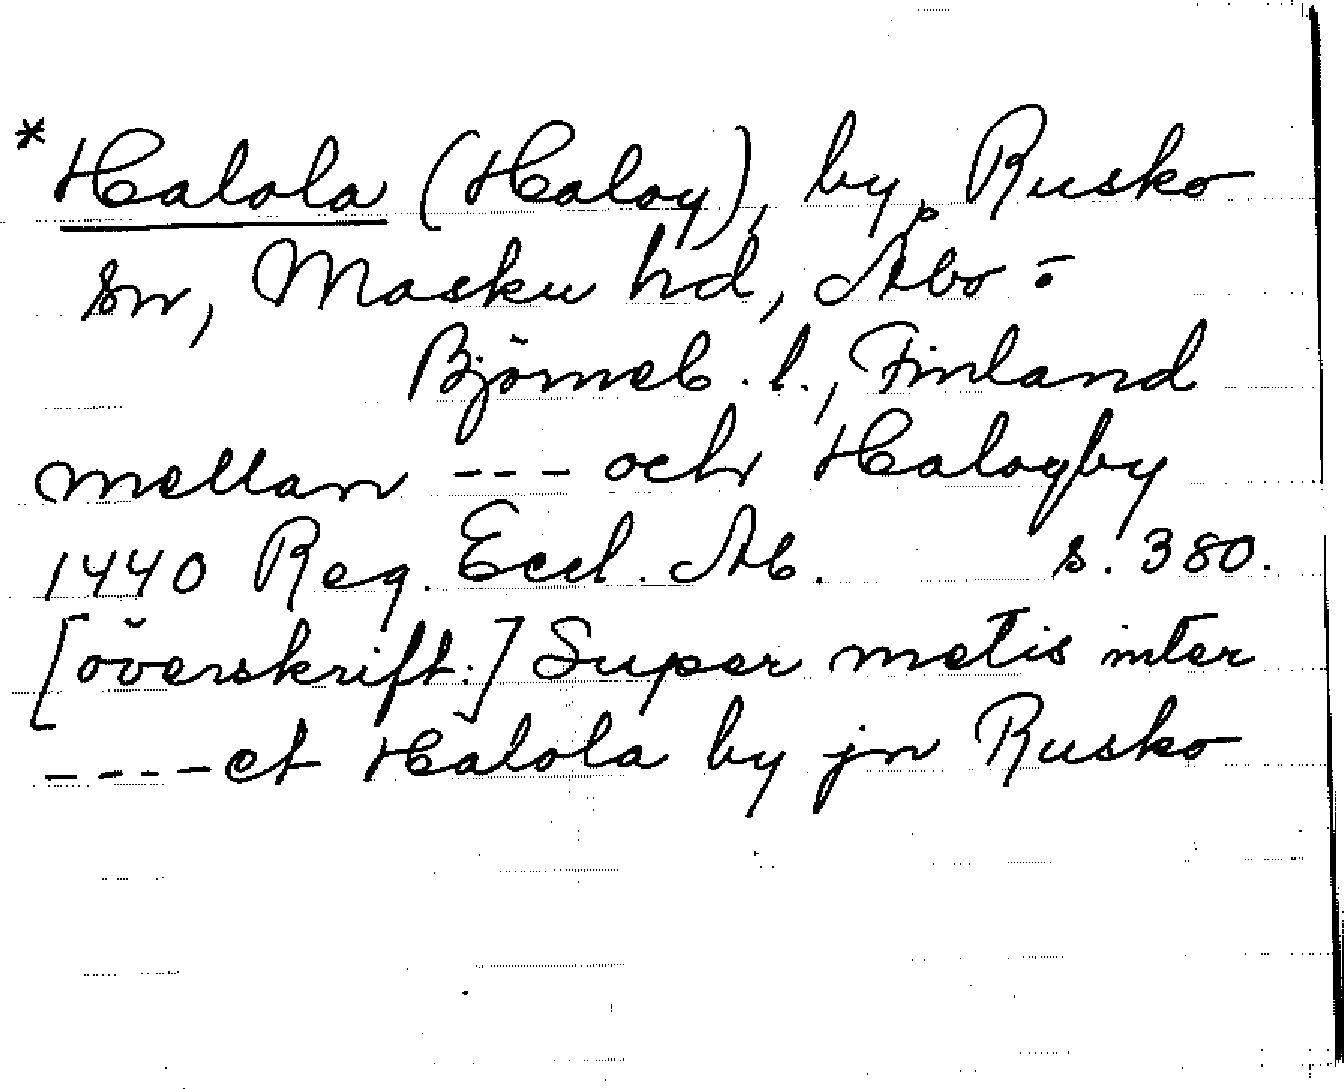 * Halola (Haloy), by, Rusko
sn, Masku hd, Åbo-
Björneb. l., Finland
mellan --- och Haloyby
1440 Reg. Eccl. Ab. s. 380.
[överskrift:] Super metis inter
----et Halola by jn Rusko